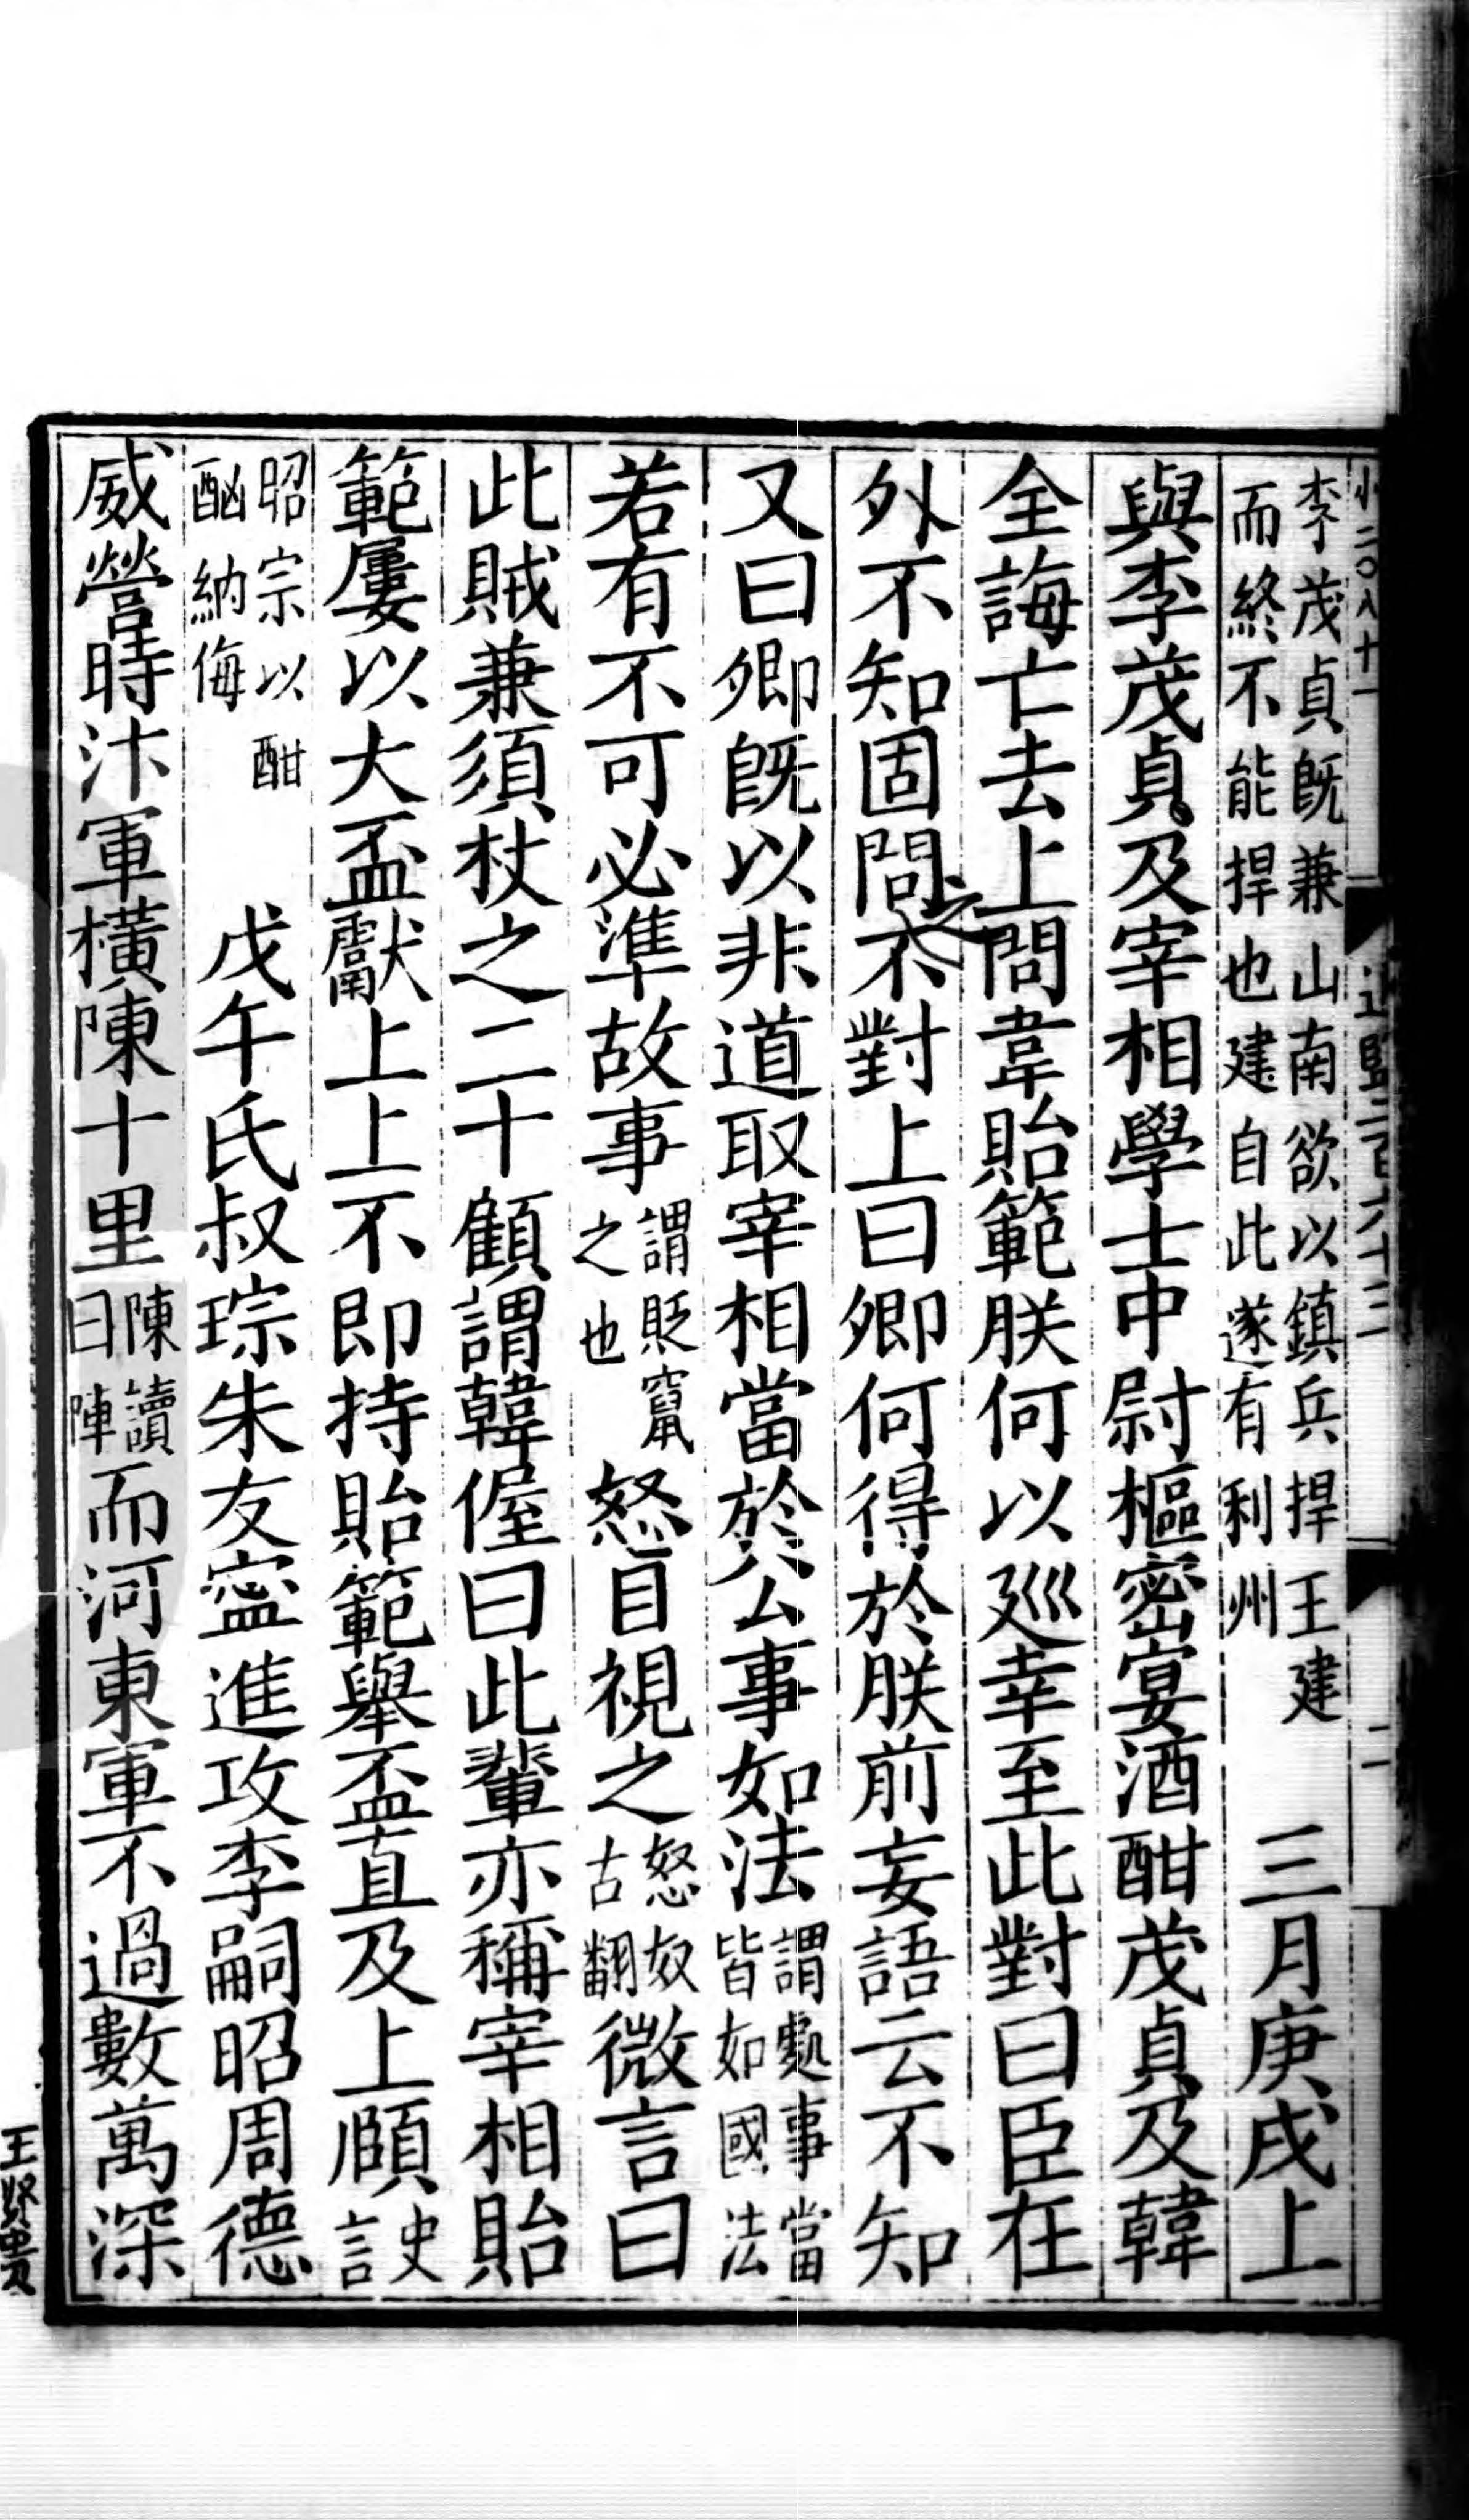 小二〇八十一 通鑑二百六十三 二
李茂貞既兼山南欲以鎮兵捍王建
而終不能捍也建自此遂有利州
三月庚戌上
與李茂貞及宰相學士中尉樞密宴酒酣茂貞及韓
全誨亡去上問韋貽範朕何以巡幸至此對曰臣在
外不知固問之不對上曰卿何得於朕前妄語云不知
又曰卿既以非道取宰相當於公事如法
謂處事當
皆如國法
若有不可必準故事
謂貶竄
之也
怒目視之
怒奴
古翻
微言曰
此賊兼須杖之二十顧謂韓偓曰此輩亦稱宰相貽
範屢以大盃獻上上不即持貽範舉盃直及上頤
史
言
昭宗以酣
酗納侮
戊午氏叔琮朱友寧進攻李嗣昭周德
威營時汴軍橫陳十里
陳讀
曰陣
而河東軍不過數萬深